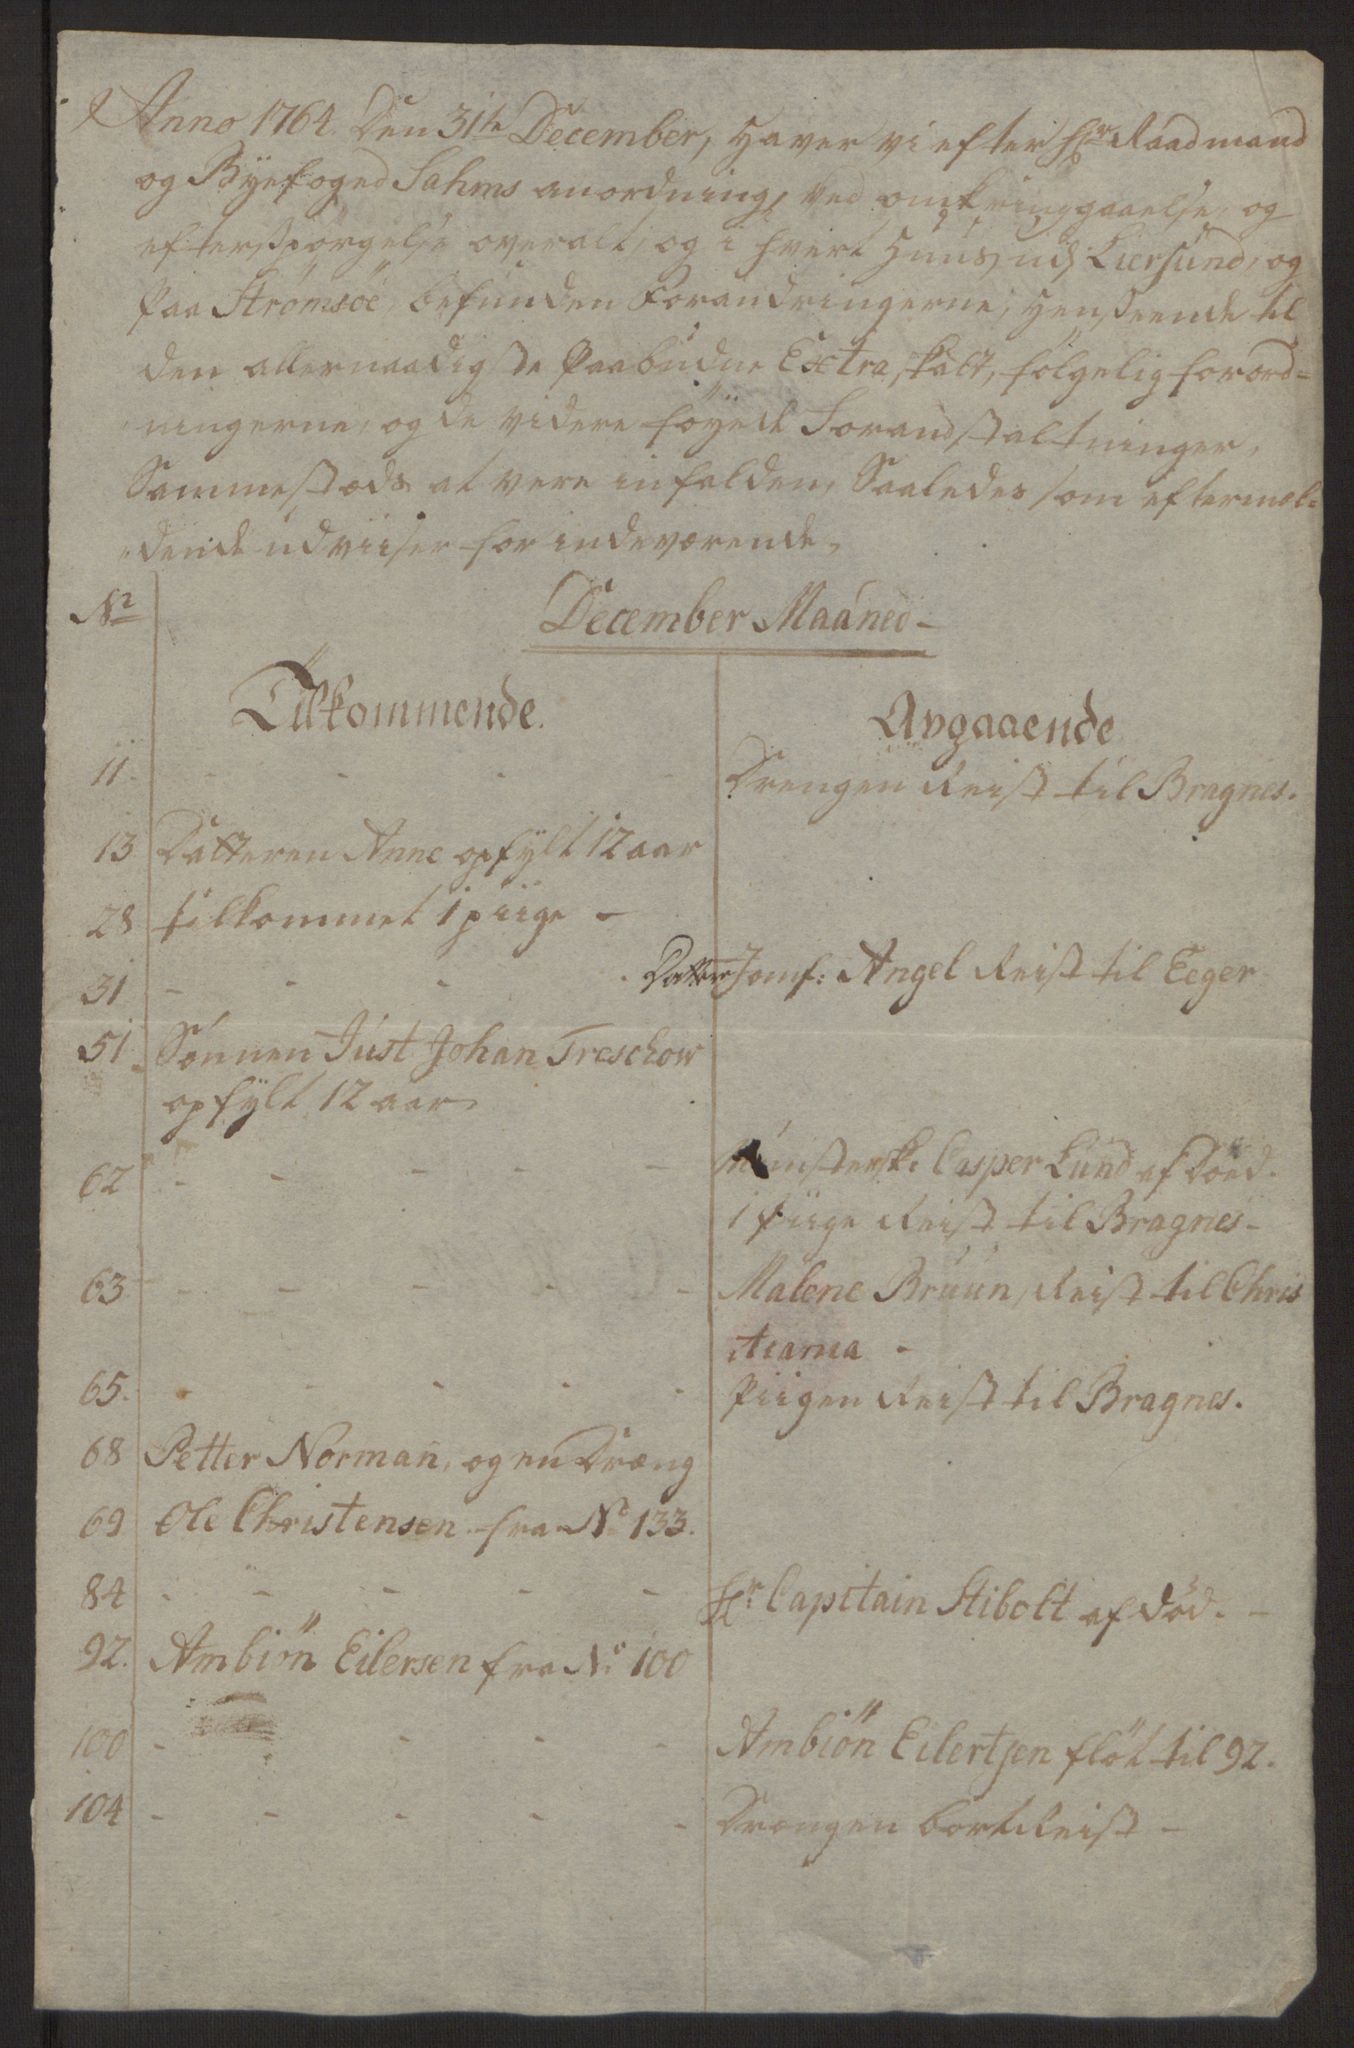 Anno 1764. Den 31te December, haver vi efter Hr Raadmand
og Byefoged Sahms anordning, ved omkringgaaelse, og
efterspørgelse overalt, og i hvert Huus, ved Liersund, og
paa Strömsöe, befunden Forandringerne, henseende til
den allernaadigste Paabudne Extra skatt, følgelig forord-
ningerne, og de videre föyede Foranstaltninger,
Sammestæds at vere infalden, Saaledes som eftermel-
dende udviiser for indeværende,
No December Maaned -
Tilkommende. Avgaaende
11 - - - - Drengen Reist til Bragnes.
13 Datteren Anne opfylt 12 aar
28 tilkommet 1 piige -
31 - - - Datter Jomf: Angel Reist til Eeger
51. Sönnen Just Johan Treschow
opfylt 12 aar
62 - - - - - Casper Lund af Döed.
1 piige Reist til Bragnes -
63 - - - - - Malene Bruun, Reist til Chris
tiania -
65. - - - - - Piigen Reist til Bragnes.
68 Petter Norman, og en Dræng
69 Ole Christensen fra No 133.
84 - - - - - Hr Capitain Stibolt af död. -
92. Ambiön Eilersen fra No 100
100 - - - - Ambiön Eilertsen flöt til 92.
104 - - - - - Drængen bortReist -